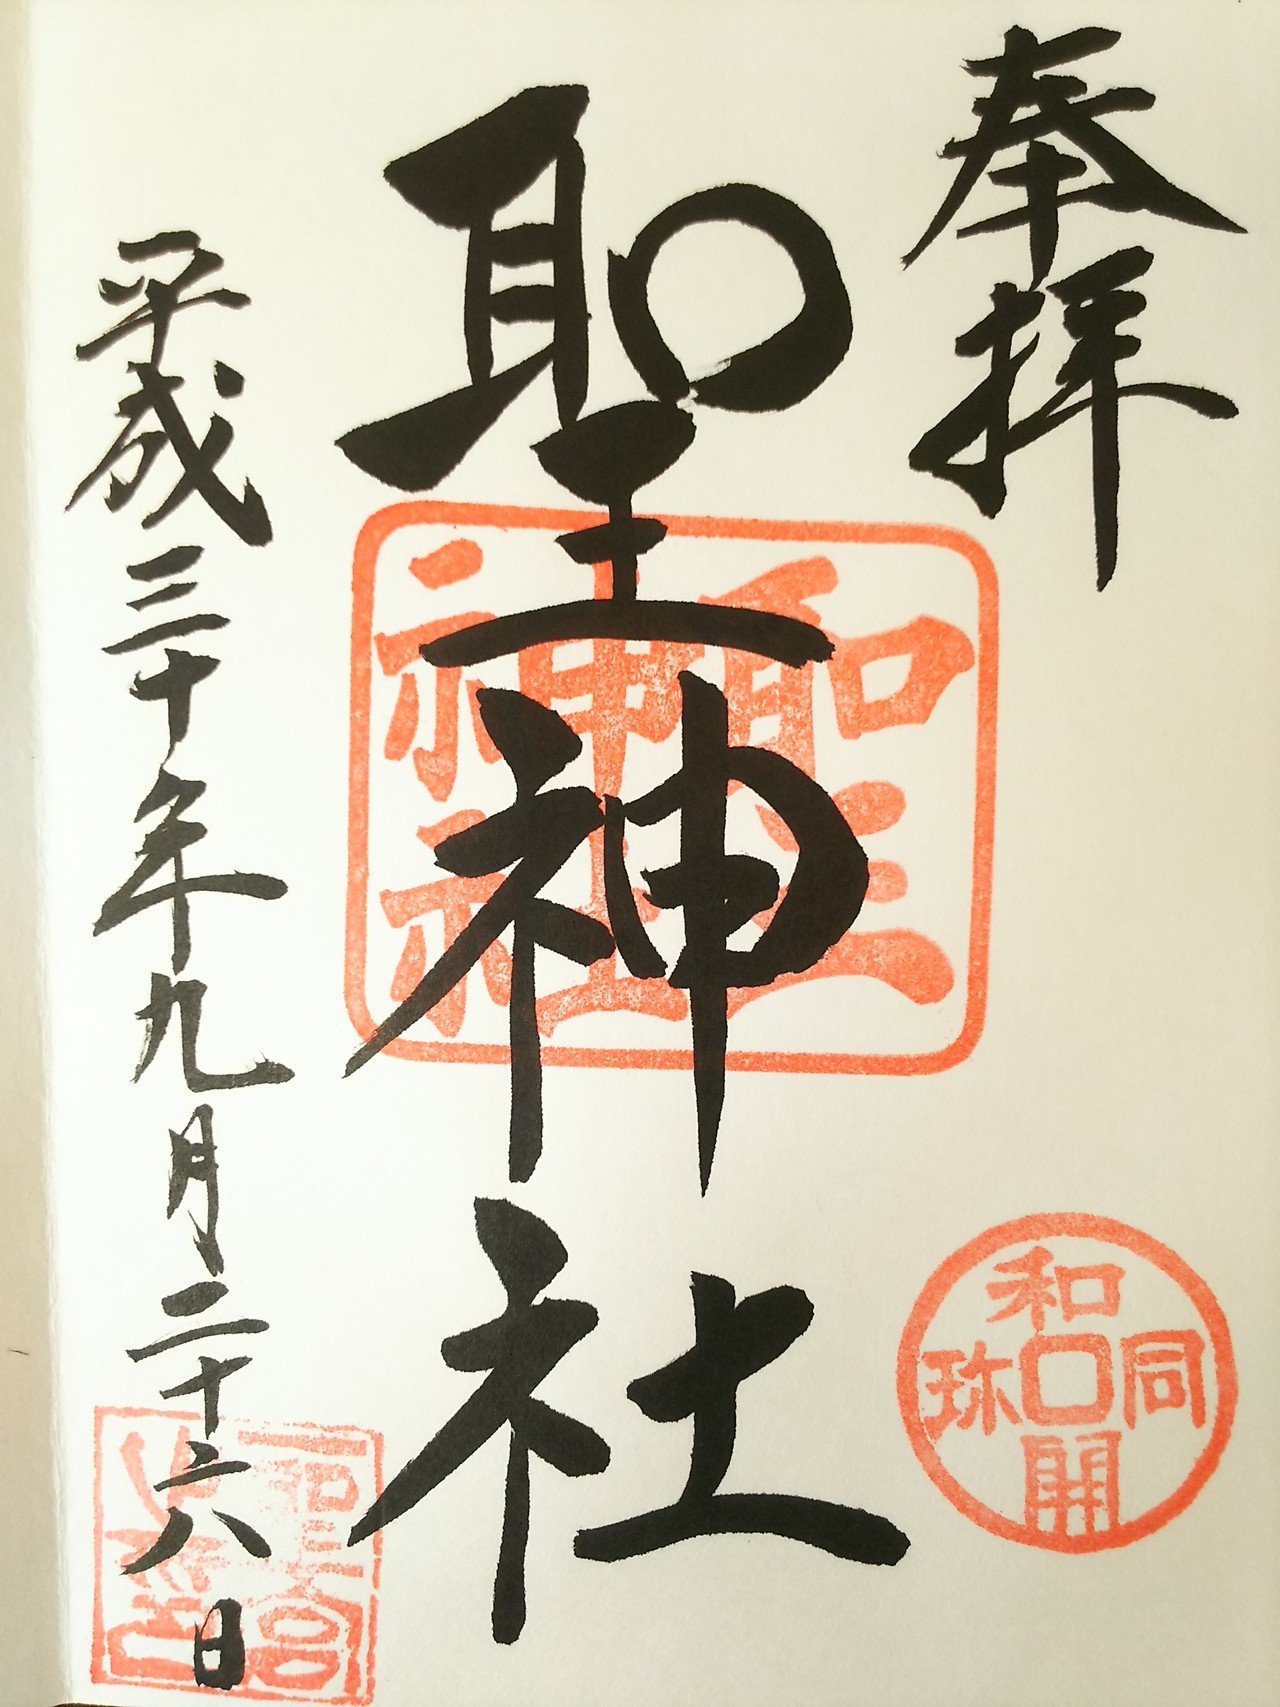 奉拝
聖神社
聖神社
和同開珎
平成三十年九月二十六日